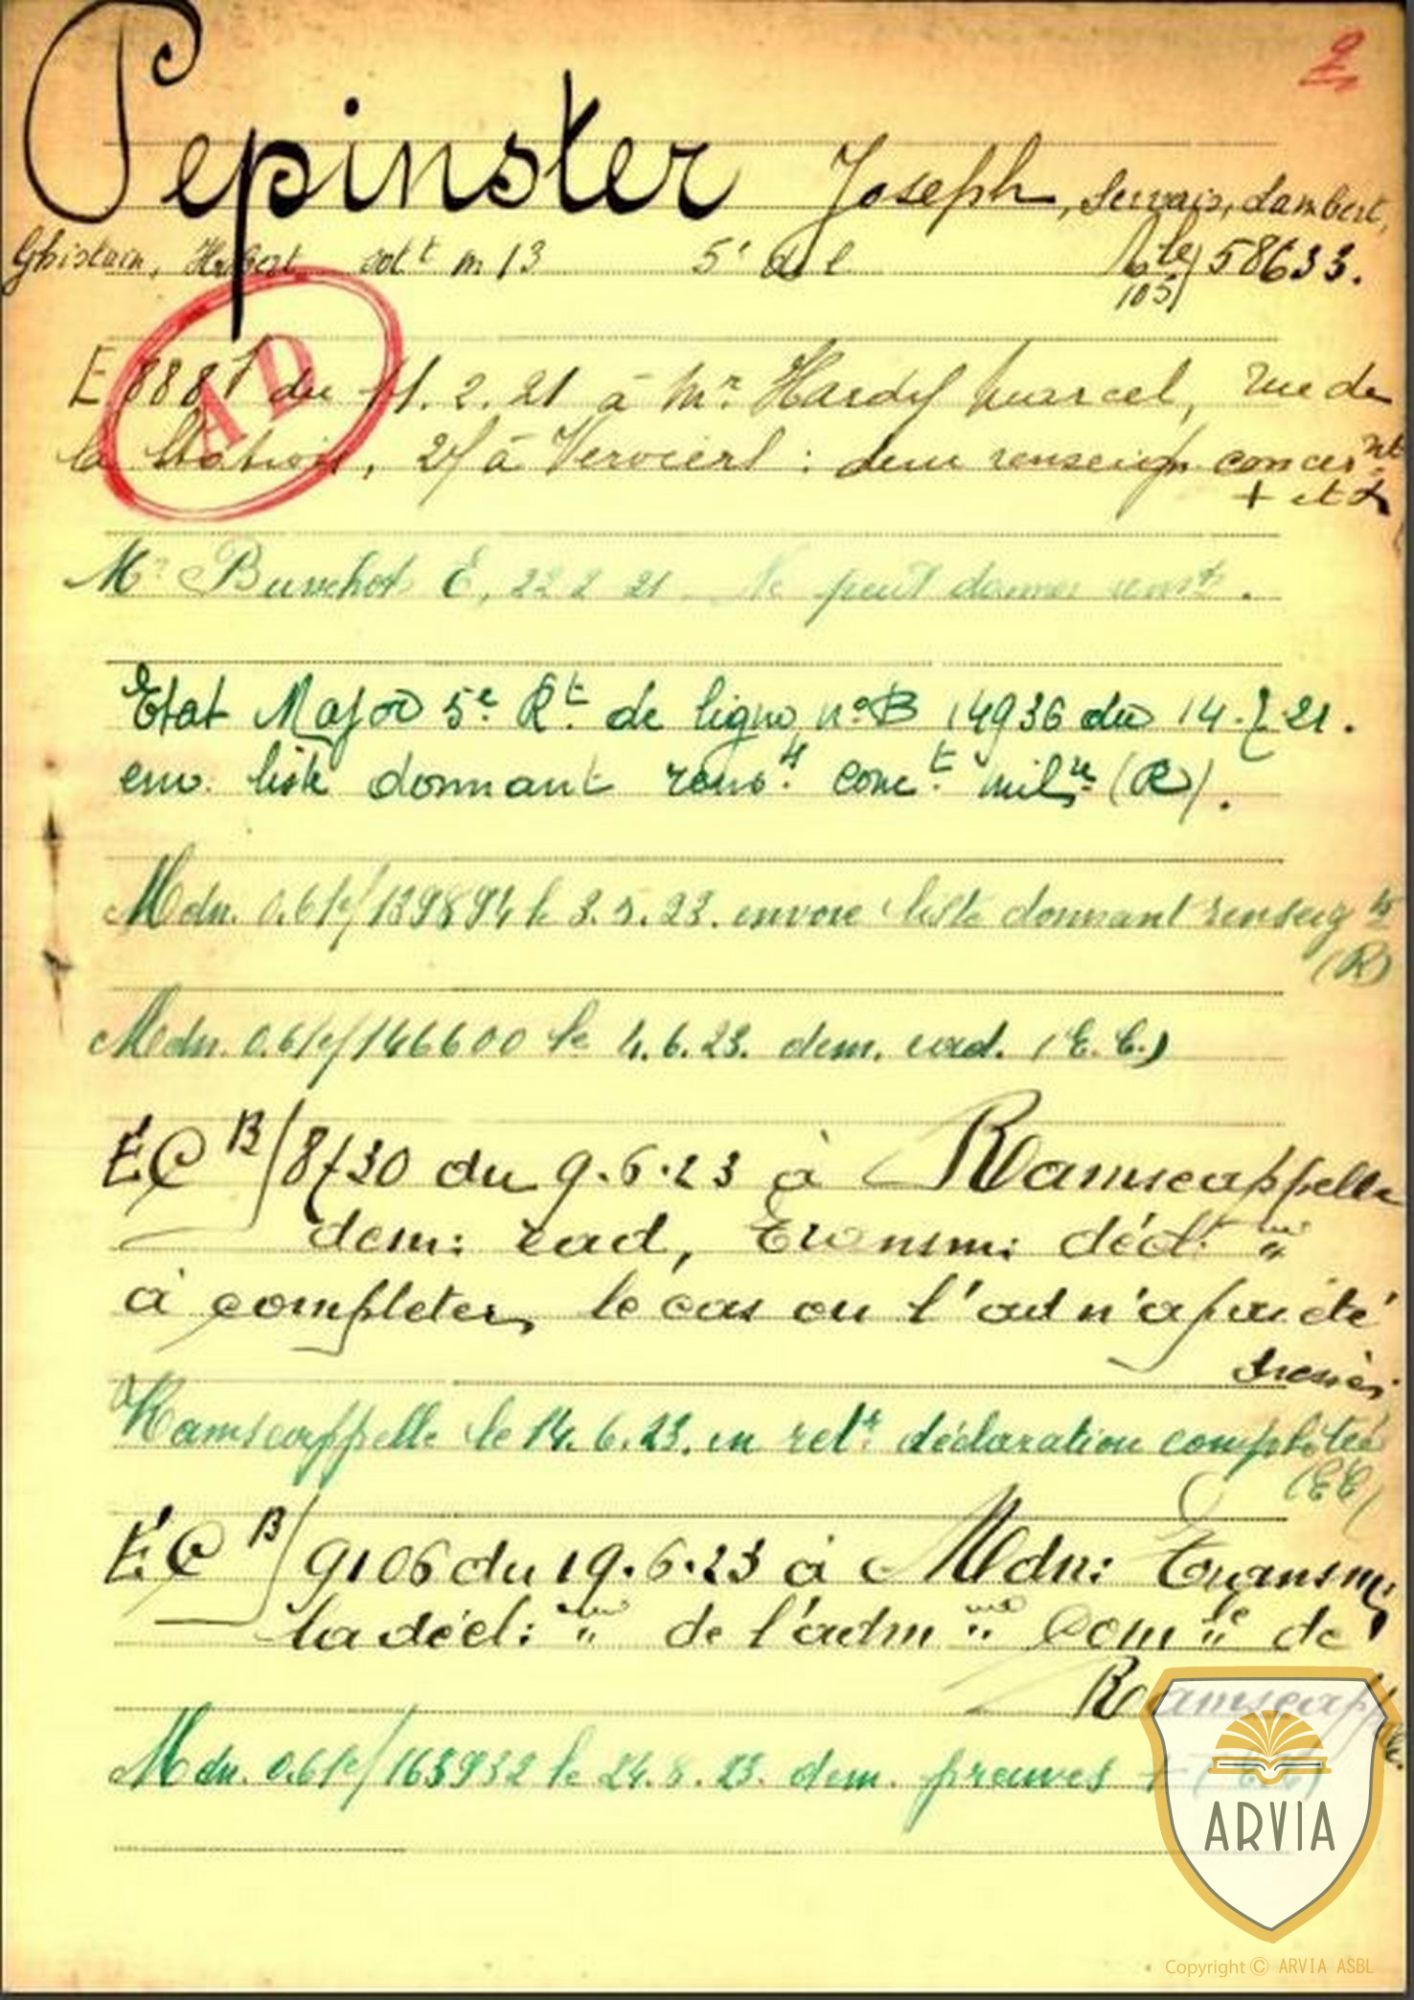 2
Pepinster Joseph, Servais, Lambert,
Ghislain, Hubert solt m 13 5e de l 58633.
105)
AD
E 8881 du 11.2.21 à Mr Hardy Marcel, rue de
la Station, 27 à Verviers : dem renseign concernnt
+ et
Mr E, 22 2 21 Ne peut donner rensts.
Etat Major 5e Rt de ligne, no B 14936 du 14.7.21.
env. liste donnant rensts conct milre (R).
Mdn. 0.61e/139894 le 3.5.23. envoie liste donnant renseigts
(R)
Mdn. 0.61e/146600 le 4.6.23. dem. rad. (E.C.)
ÉC B/8730 du 9.6.23 à Ramscappelle
dem: rad, transm: décl: "
à completer, le cas ou l'act n'a pas été
dressé.
Ramscappelle le 14.6.23. en retr déclaration complétée
(EC)
ÉC B/9106 du 19.6.23 à Mdn: Transm:
la décl: " de l'adm " Com le de
Ramscappelle.
Mdn. 0.61e/163932 le 24.8.23. dem. preuves + (EC)
ARVIA
Copyright © ARVIA ASBL